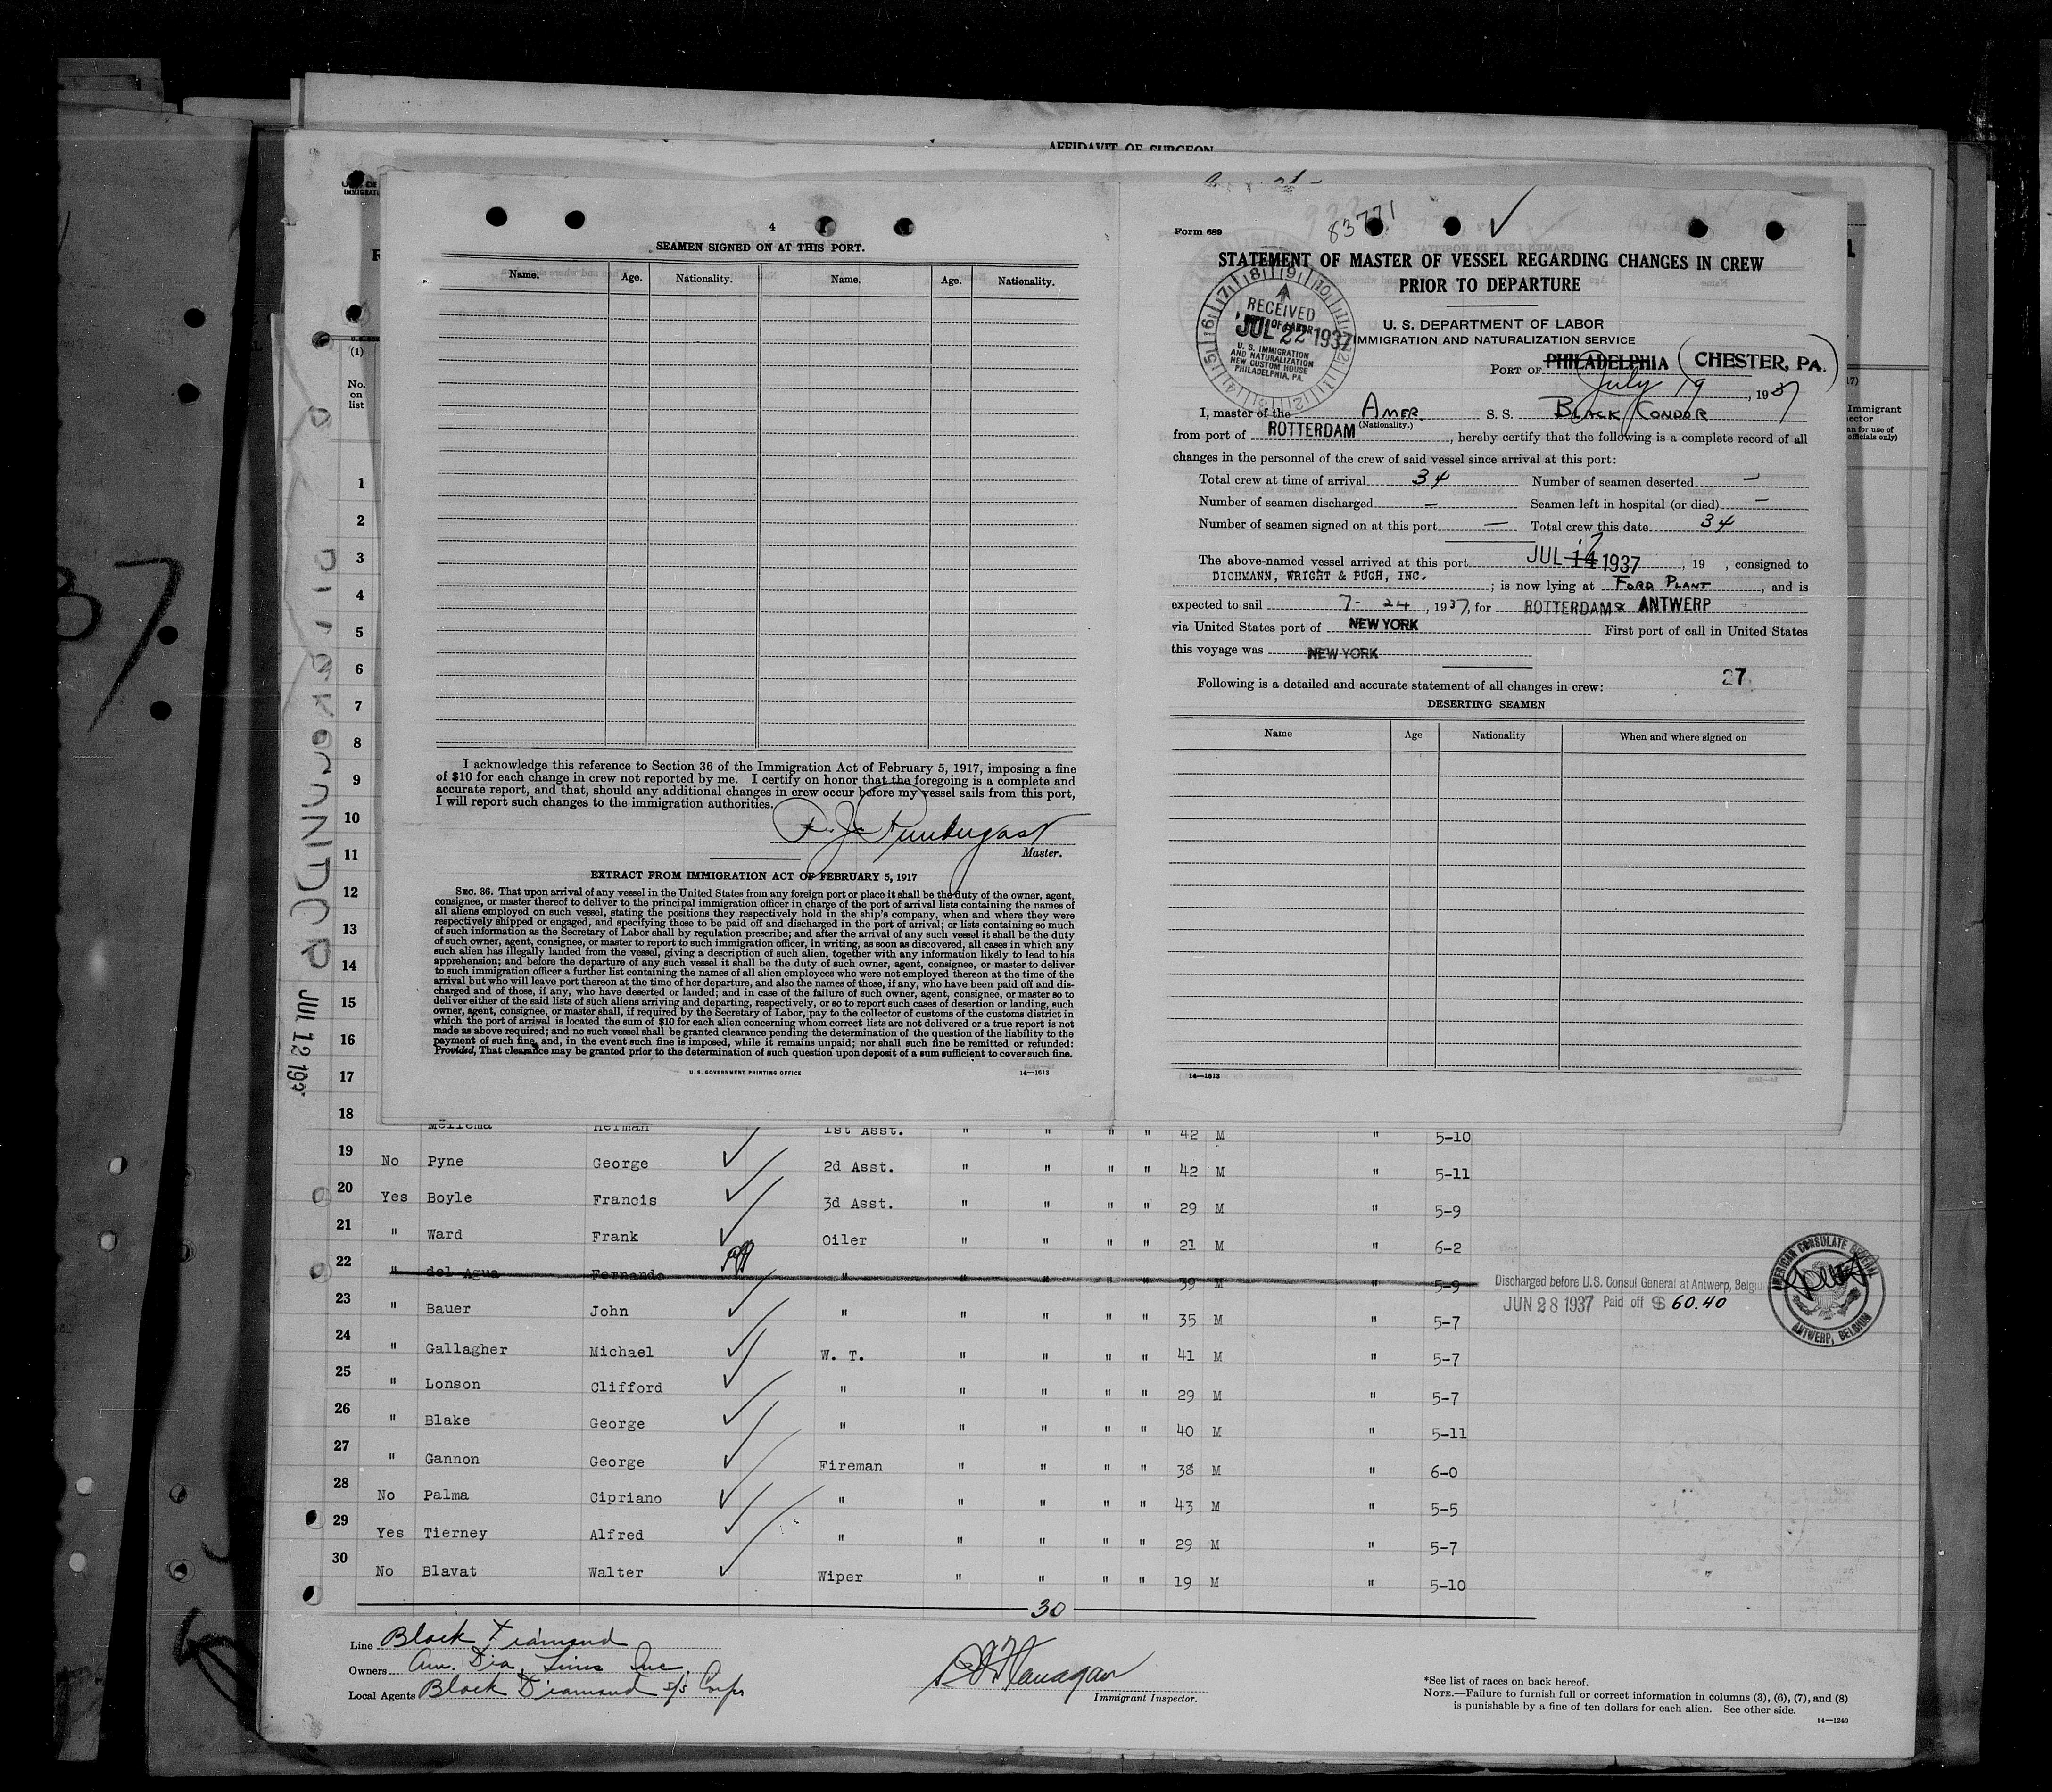 AFFIDAVIT OF SURGEON
4
SEAMEN SIGNED ON AT THIS PORT.
Name. Age. Nationality. Name. Age. Nationality.
I acknowledge this reference to Section 36 of the Immigration Act of February 5, 1917, imposing a fine
of $10 for each change in crew not reported by me. I certify on honor that the foregoing is a complete and
accurate report, and that, should any additional changes in crew occur before my vessel sails from this port,
I will report such changes to the immigration authorities.
Master.
EXTRACT FROM IMMIGRATION ACT OF FEBRUARY 5, 1917
SEC. 36. That upon arrival of any vessel in the United States from any foreign port or place it shall be the duty of the owner, agent,
consignee, or master thereof to deliver to the principal immigration officer in charge of the port of arrival lists containing the names of
all aliens employed on such vessel, stating the positions they respectively hold in the ship's company, when and where they were
respectively shipped or engaged, and specifying those to be paid off and discharged in the port of arrival; or lists containing so much
of such information as the Secretary of Labor shall by regulation prescribe; and after the arrival of any such vessel it shall be the duty
of such owner, agent, consignee, or master to report to such immigration officer, in writing, as soon as discovered, all cases in which any
such alien has illegally landed from the vessel, giving a description of such alien, together with any information likely to lead to his
apprehension; and before the departure of any such vessel it shall be the duty of such owner, agent, consignee, or master to deliver
to such immigration officer a further list containing the names of all alien employees who were not employed thereon at the time of the
arrival but who will leave port thereon at the time of her departure, and also the names of those, if any, who have been paid off and dis-
charged and of those, if any, who have deserted or landed; and in case of the failure of such owner, agent, consignee, or master so to
deliver either of the said lists of such aliens arriving and departing, respectively, or so to report such cases of desertion or landing, such
owner, agent, consignee, or master shall, if required by the Secretary of Labor, pay to the collector of customs of the customs district in
which the port of arrival is located the sum of $10 for each alien concerning whom correct lists are not delivered or a true report is not
made as above required; and no such vessel shall be granted clearance pending the determination of the question of the liability to the
payment of such fine, and, in the event such fine is imposed, while it remains unpaid; nor shall such fine be remitted or refunded:
Provided, That clearance may be granted prior to the determination of such question upon deposit of a sum sufficient to cover such fine.
U. S. GOVERNMENT PRINTING OFFICE 14—1613
83771
Form 689
STATEMENT OF MASTER OF VESSEL REGARDING CHANGES IN CREW
PRIOR TO DEPARTURE
RECEIVED
JUL 22 1937
U. S. IMMIGRATION
AND NATURALIZATION
NEW CUSTOM HOUSE
PHILADELPHIA, PA.
U. S. DEPARTMENT OF LABOR
IMMIGRATION AND NATURALIZATION SERVICE
PORT OF PHILADELPHIA (CHESTER, PA.)
July 19, 1937
I, master of the AMER S. S. BLACK CONDOR
(Nationality.)
from port of ROTTERDAM, hereby certify that the following is a complete record of all
changes in the personnel of the crew of said vessel since arrival at this port:
Total crew at time of arrival 34 Number of seamen deserted —
Number of seamen discharged — Seamen left in hospital (or died) —
Number of seamen signed on at this port — Total crew this date 34
The above-named vessel arrived at this port JUL 14 17 1937, 19 , consigned to
DICHMANN, WRIGHT & PUGH, INC. ; is now lying at FORD PLANT, and is
expected to sail 7-24, 1937, for ROTTERDAM & ANTWERP
via United States port of NEW YORK First port of call in United States
this voyage was NEW YORK
27
Following is a detailed and accurate statement of all changes in crew:
DESERTING SEAMEN
Name Age Nationality When and where signed on
14—1613
(1)
No.
on
list
Immigrant
1
2
3
4
5
6
7
8
9
10
11
12
13
14
15
16
17
18 Mellema Helman 1st Asst. " " " " 42 M " 5-10
19 No Pyne George 2d Asst. " " " " 42 M " 5-11
20 Yes Boyle Francis 3d Asst. " " " " 29 M " 5-9
21 " Ward Frank Oiler " " " " 21 M " 6-2
22 " del Agua Fernando " " " " " 39 M " 5-9 Discharged before U.S. Consul General at Antwerp, Belgium
JUN 28 1937 Paid off $ 60.40
AMERICAN CONSULATE GENERAL
ANTWERP, BELGIUM
23 " Bauer John " " " " " 35 M " 5-7
24 " Gallagher Michael W. T. " " " " 41 M " 5-7
25 " Lonson Clifford " " " " " 29 M " 5-7
26 " Blake George " " " " " 40 M " 5-11
27 " Gannon George Fireman " " " " 38 M " 6-0
28 No Palma Cipriano " " " " " 43 M " 5-5
29 Yes Tierney Alfred " " " " " 29 M " 5-7
30 No Blavat Walter Wiper " " " " 19 M " 5-10
30
Line Black Diamond
Owners Am. Dia. Lines Inc.
Local Agents Black Diamond S/S Corp
Immigrant Inspector.
*See list of races on back hereof.
NOTE.—Failure to furnish full or correct information in columns (3), (6), (7), and (8)
is punishable by a fine of ten dollars for each alien. See other side.
14—1240